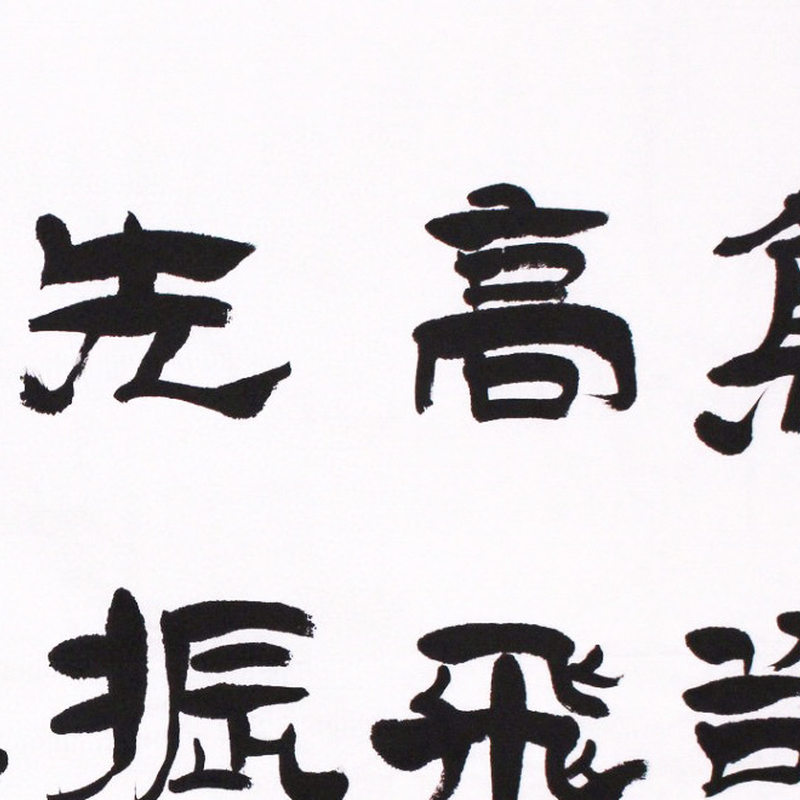 高飛
先振